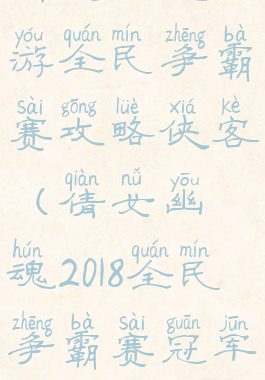 yóu quán mín zhēng bà
游全民争霸
sài gōng lüè xiá kè
赛攻略侠客
qiàn nǚ yōu
(倩女幽
hún quán mín
魂2018全民
zhēng bà sài guān jūn
争霸赛冠军